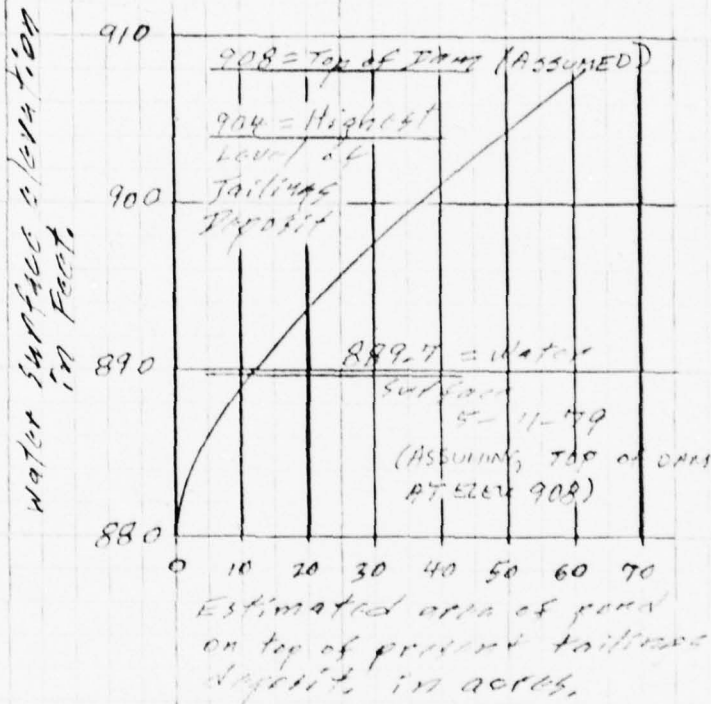 Water Surface elevation
in Feet.
910
908 = Top of Dam (ASSUMED)
904 = Highest
Level of
Tailings
Deposit
900
890
889.7 = Water
Surface
5-11-79
(ASSUMING TOP OF DAM
AT ELEV 908)
880
0 10 20 30 40 50 60 70
Estimated area of pond
on top of present tailings
deposit, in acres.